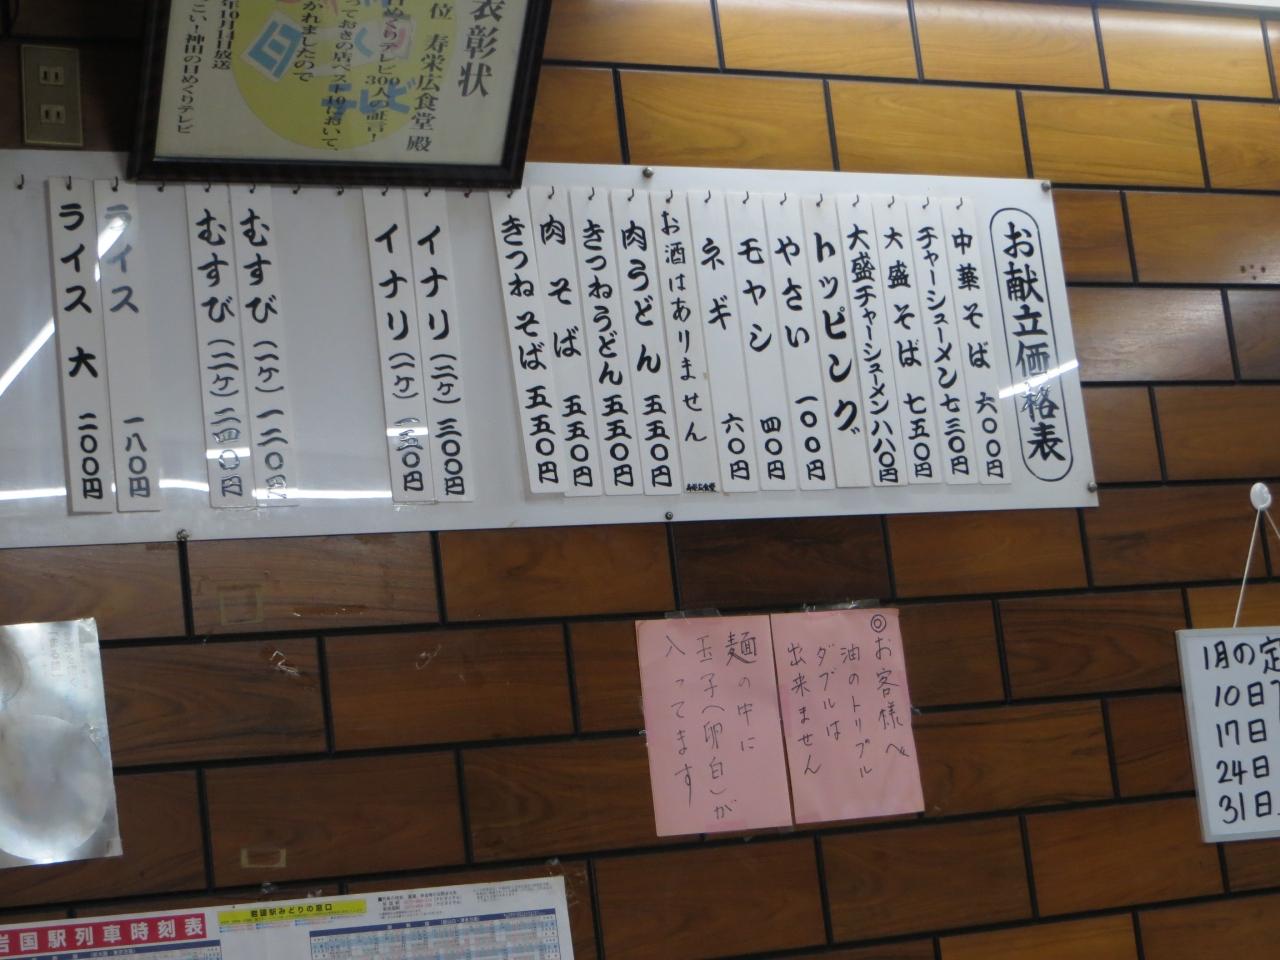 表彰状
位 寿栄広食堂 殿
日めくりテレビ300人の証言!
っておきの店ベスト10に於いて、
かれましたので
年10月14日放送
こい!神田の日めくりテレビ
お献立価格表
中華そば 六〇〇円
チャーシューメン 七三〇円
大盛そば 七五〇円
大盛チャーシューメン 八八〇円
トッピング
やさい 一〇〇円
モヤシ 四〇円
ネギ 六〇円
お酒はありません
寿栄広食堂
肉うどん 五五〇円
きつねうどん 五五〇円
肉そば 五五〇円
きつねそば 五五〇円
イナリ(二ケ) 三〇〇円
イナリ(一ケ) 一五〇円
むすび(一ケ) 一二〇円
むすび(二ケ) 二四〇円
ライス 一八〇円
ライス 大 二〇〇円
◎お客様へ
油のトリプル
ダブルは
出来ません
麺の中に
玉子(卵白)が
入ってます
1月の定
10日
17日
24日
31日
岩国駅列車時刻表
岩国駅みどりの窓口